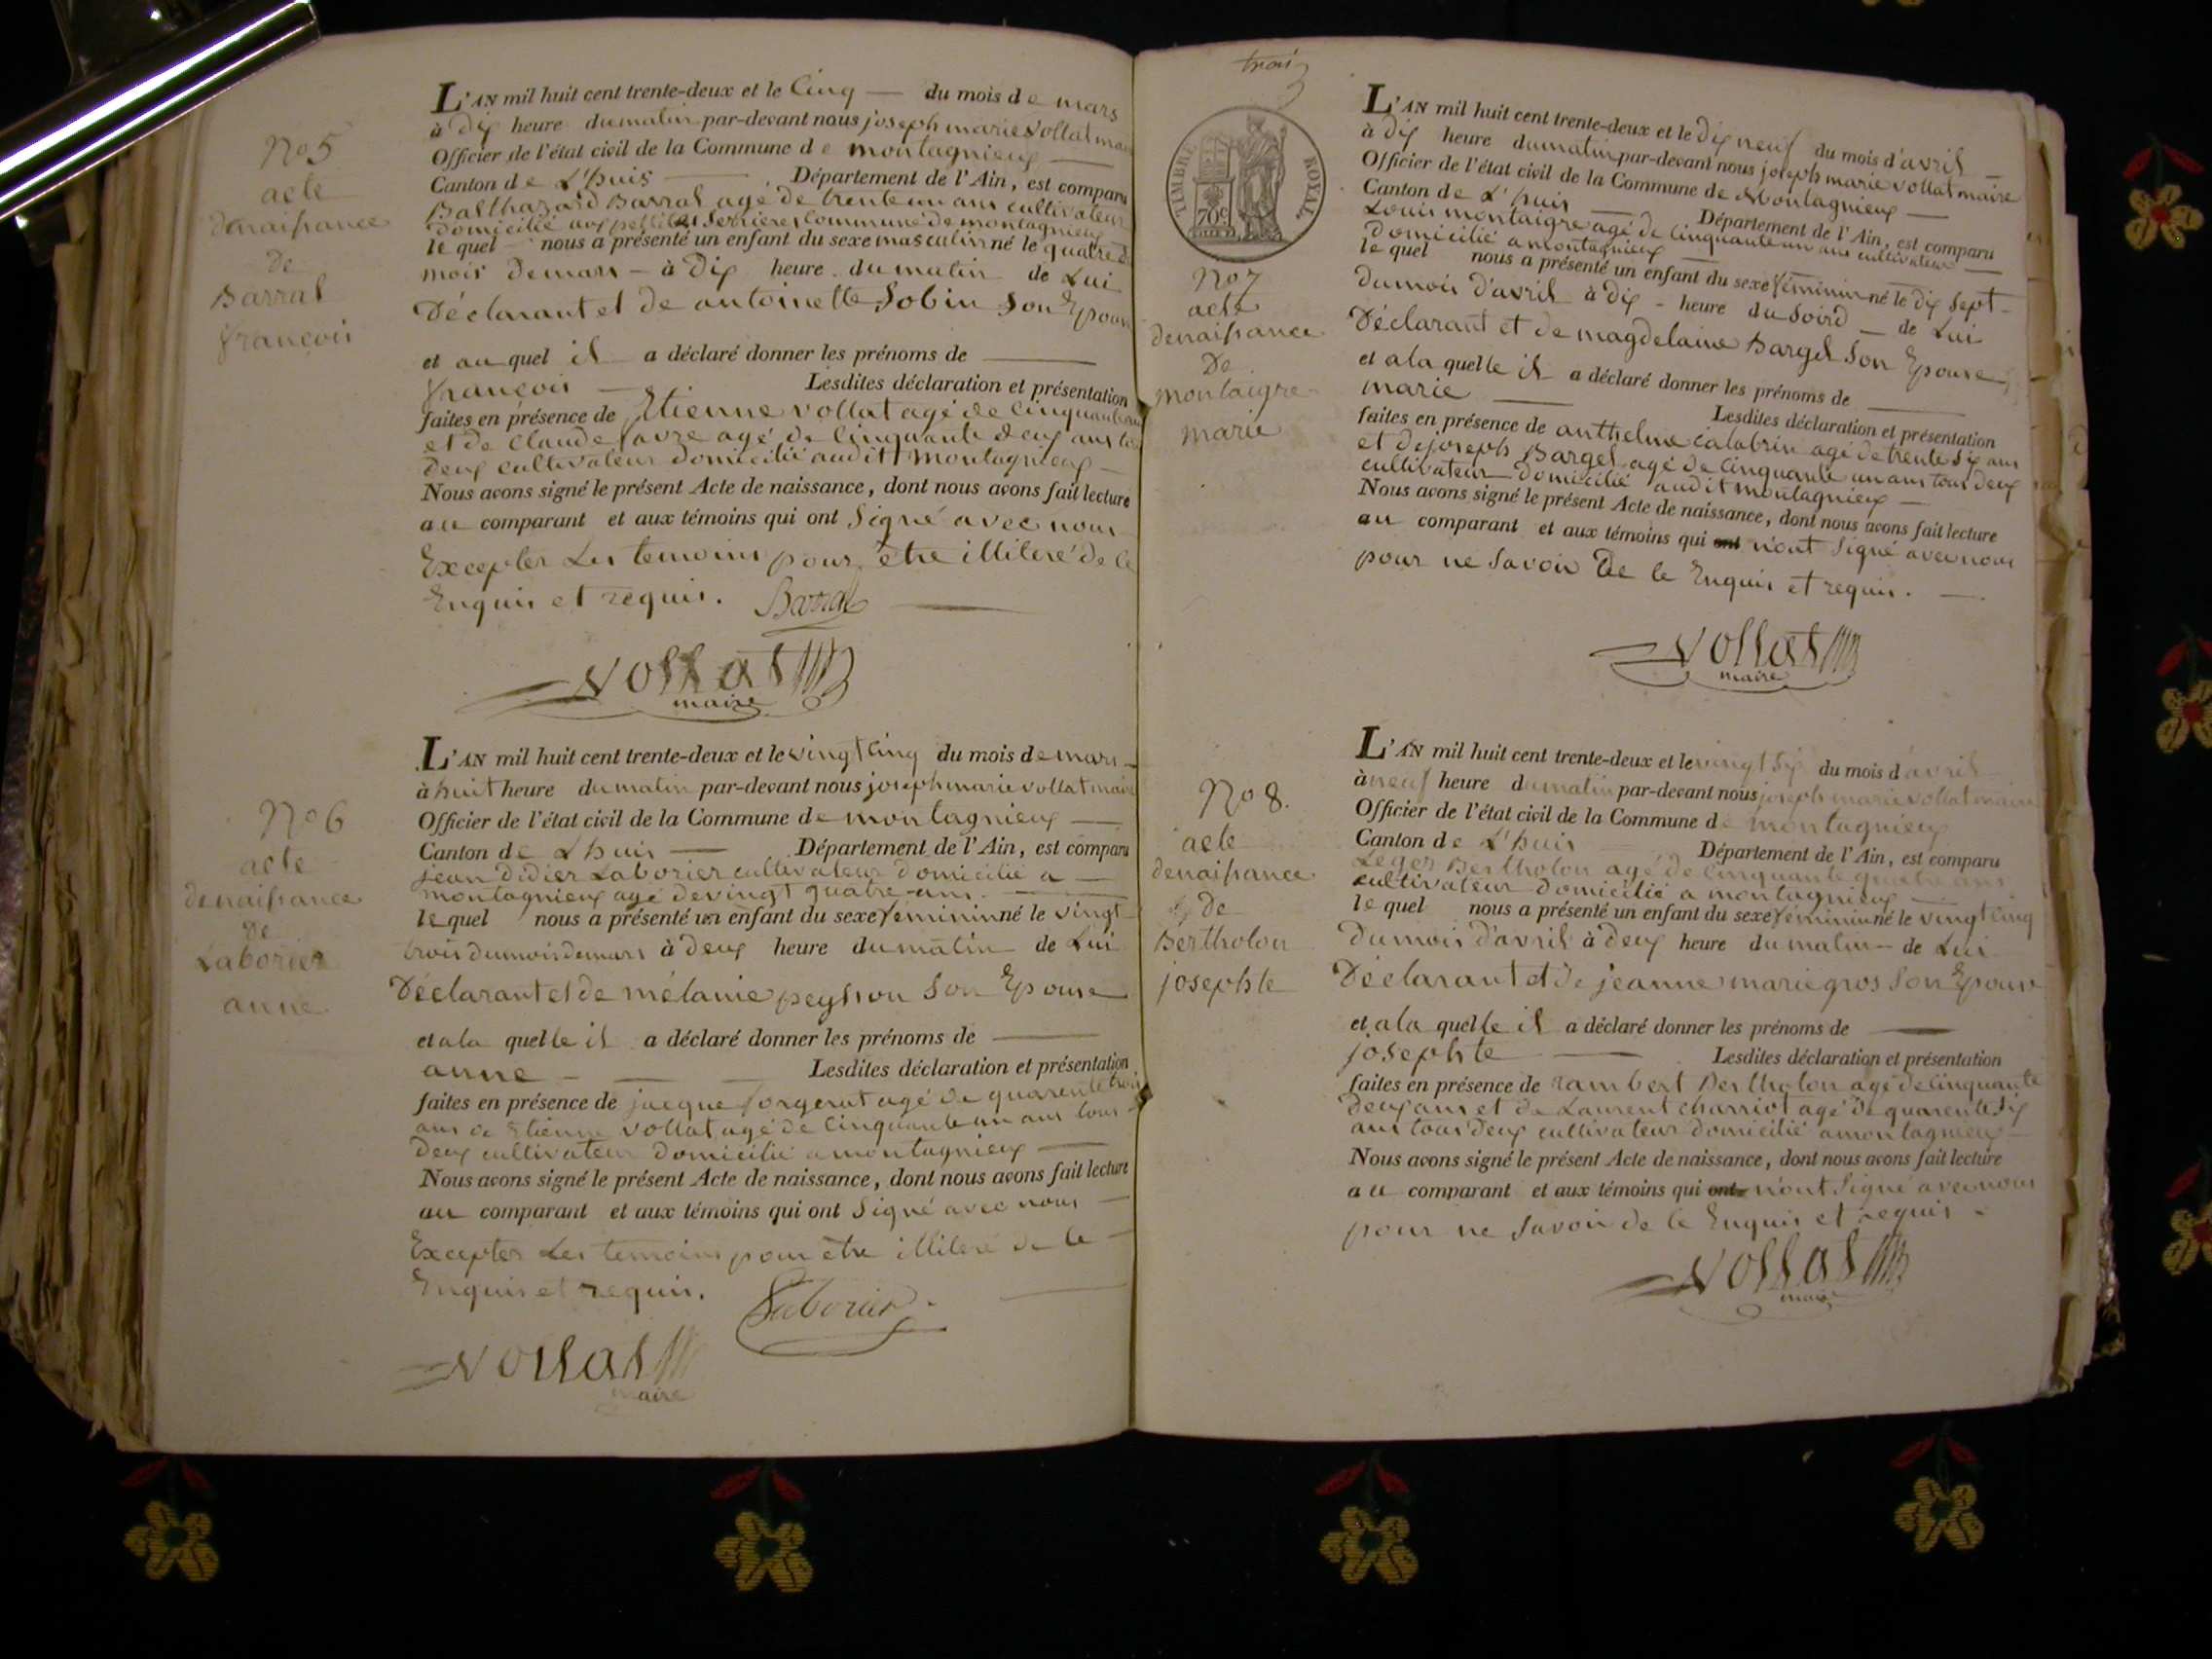 No 5
acte
denaissance
de
Barral
françois
L'AN mil huit cent trente-deux et le cinq du mois de mars
à dix heure du matin par-devant nous joseph marie vollat
Officier de l'état civil de la Commune de montagnieux
Canton de L'huis Département de l'Ain, est comparu
Balthazard Barral agé de trente un ans cultivateur
domicilié aux Serrieres commune de montagnieux
le quel nous a présenté un enfant du sexe masculin né le quatre
mois demars à dix heure du matin de Lui
Déclarant et de antoinette Sobin Son Epouse
et au quel il a déclaré donner les prénoms de
françois Lesdites déclaration et présentation
faites en présence de Etienne vollat agé de cinquante
et de Claude favre agé de cinquante deux ans
deux cultivateur domicilié audit montagnieux
Nous avons signé le présent Acte de naissance, dont nous avons fait lecture
au comparant et aux témoins qui ont Signé avec nous
Excepter Les temoins pour être illiteré de le
Enquis et requis. Barral
vollat
maire
No 6
acte
denaissance
de
Laborier
anne
L'AN mil huit cent trente-deux et le vingt cinq du mois de mars
à huit heure du matin par-devant nous joseph marie vollat maire
Officier de l'état civil de la Commune de montagnieux
Canton de Lhuis Département de l'Ain, est comparu
jean didier Laborier cultivateur domicilié a
montagnieux agé de vingt quatre ans.
le quel nous a présenté un enfant du sexe féminin né le vingt
trois dumois demars à deux heure du matin de Lui
Déclarant et de mélanie peysson Son Epouse
et a la quelle il a déclaré donner les prénoms de
anne Lesdites déclaration et présentation
faites en présence de jacque forgerat agé de quarente trois
ans de Etienne vollat agé de cinquante un ans tous
deux cultivateur domicilié a montagnieux
Nous avons signé le présent Acte de naissance, dont nous avons fait lecture
au comparant et aux témoins qui ont Signé avec nous
Excepter Les temoins pour être illiteré de le
Enquis et requis. Laborier
vollat
maire
trois
TIMBRE ROYAL
70c
No 7
acte
denaissance
De
montaigre
marie
L'AN mil huit cent trente-deux et le dix neuf du mois d'avril
à dix heure du matin par-devant nous joseph marie vollat maire
Officier de l'état civil de la Commune de Montagnieux
Canton de L'huis Département de l'Ain, est comparu
Louis montaigre agé de cinquante un ans cultivateur
domicilié a montagnieux
le quel nous a présenté un enfant du sexe féminin né le dix Sept
dumois d'avril à dix heure du Soird de Lui
Déclarant et de magdelaine Bargel Son Epouse
et a la quelle il a déclaré donner les prénoms de
marie Lesdites déclaration et présentation
faites en présence de anthelme calabrin agé de trente Six ans
et de joseph Bargel agé de cinquante un ans tous deux
cultivateur domicilié audit montagnieux
Nous avons signé le présent Acte de naissance, dont nous avons fait lecture
au comparant et aux témoins qui ont n'ont Signé avec nous
pour ne Savoir De le Enquis et requis.
vollat
maire
No 8.
acte
denaissance
de
Bertholon
josephte
L'AN mil huit cent trente-deux et le vingt Six du mois d'avril
à neuf heure du matin par-devant nous joseph marie vollat maire
Officier de l'état civil de la Commune de montagnieux
Canton de L'huis Département de l'Ain, est comparu
Leger Bertholon agé de cinquante quatre ans
cultivateur domicilié a montagnieux
le quel nous a présenté un enfant du sexe féminin né le vingt cinq
Dumois d'avril à deux heure du matin de Lui
Déclarant et de jeanne marie gros Son Epouse
et a la quelle il a déclaré donner les prénoms de
josephte Lesdites déclaration et présentation
faites en présence de rambert Bertholon agé de cinquante
deux ans et de Laurent charriot agé de quarente Six
ans tous deux cultivateur domicilié a montagnieux
Nous avons signé le présent Acte de naissance, dont nous avons fait lecture
au comparant et aux témoins qui ont n'ont Signé avec nous
pour ne Savoir de le Enquis et requis
vollat
maire